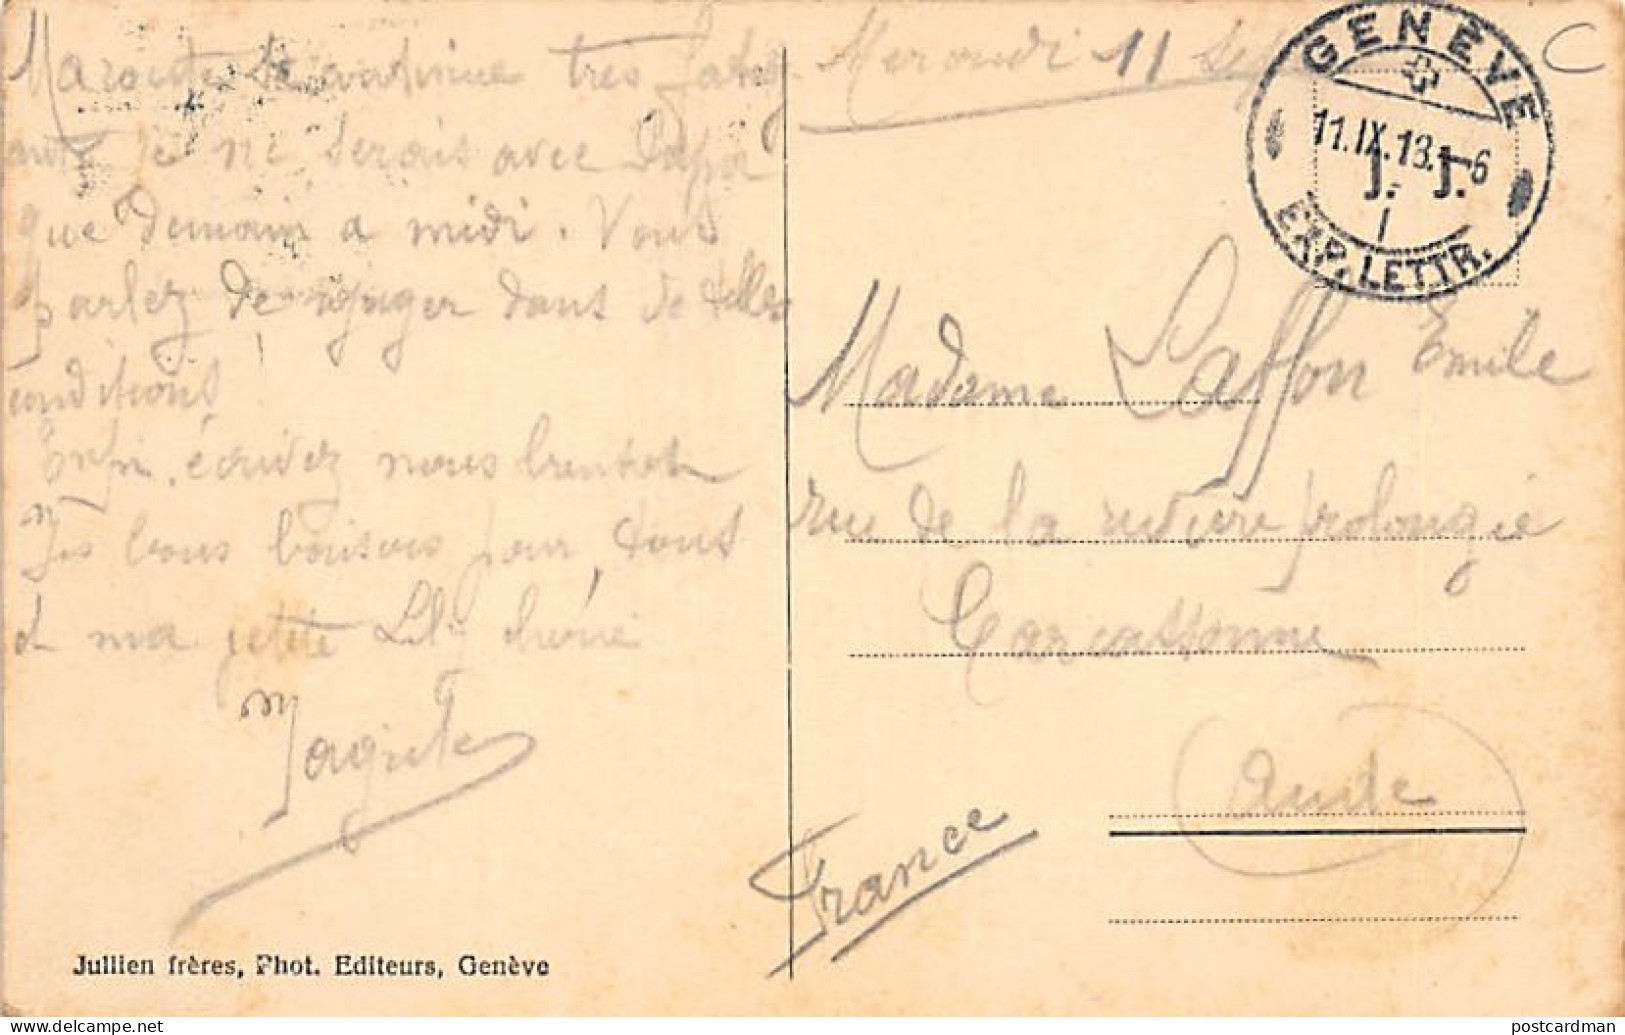 Ma route se continue très fatig
ante je ne serais avec Papa
que demain a midi. Vous
parlez de voyager dans de telles
conditions!
Enfin, écrivez nous
bons baisers pour tous
et ma petite Lily chérie
Magui
Jullien frères, Phot. Editeurs, Genève
Mercredi 11
C
GENÈVE
11.IX.18. - 6
J. J.
EXP. LETTR.
Madame Laffon Emile
rue de la rivière prolongée
Carcassonne
Aude
France
postcardman